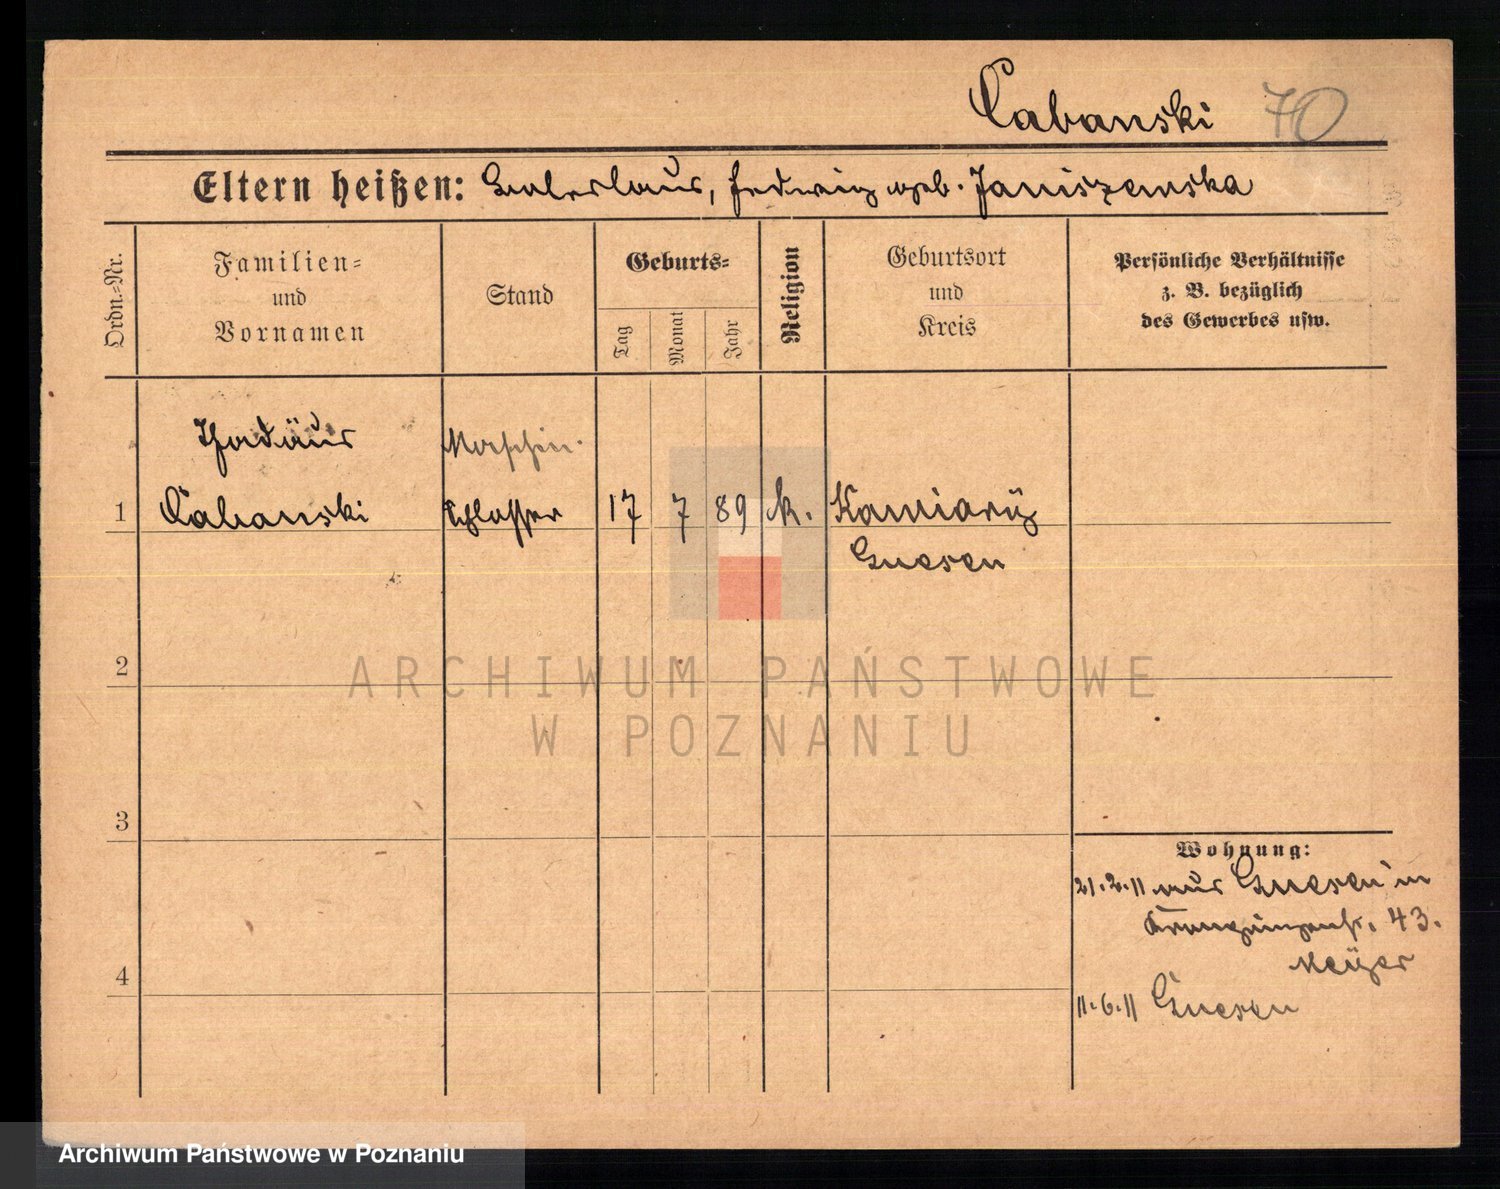 Cabanski 70
Eltern heißen: Hedwig geb. Janiszewska
Ordn.-Nr.
Familien-
und
Vornamen
Stand
Geburts-
Tag
Monat
Jahr
Religion
Geburtsort
und
Kreis
Persönliche Verhältnisse
z. B. bezüglich
des Gewerbes usw.
Thadäus Maschin-
1 Cabanski Schlosser 17 7 89 k.
Gnesen
2
ARCHIWUM PAŃSTWOWE
W POZNANIU
3
Wohnung:
21.2.11 aus Gnesen in
43.
Meyer
4
11.6.11 Gnesen
Archiwum Państwowe w Poznaniu